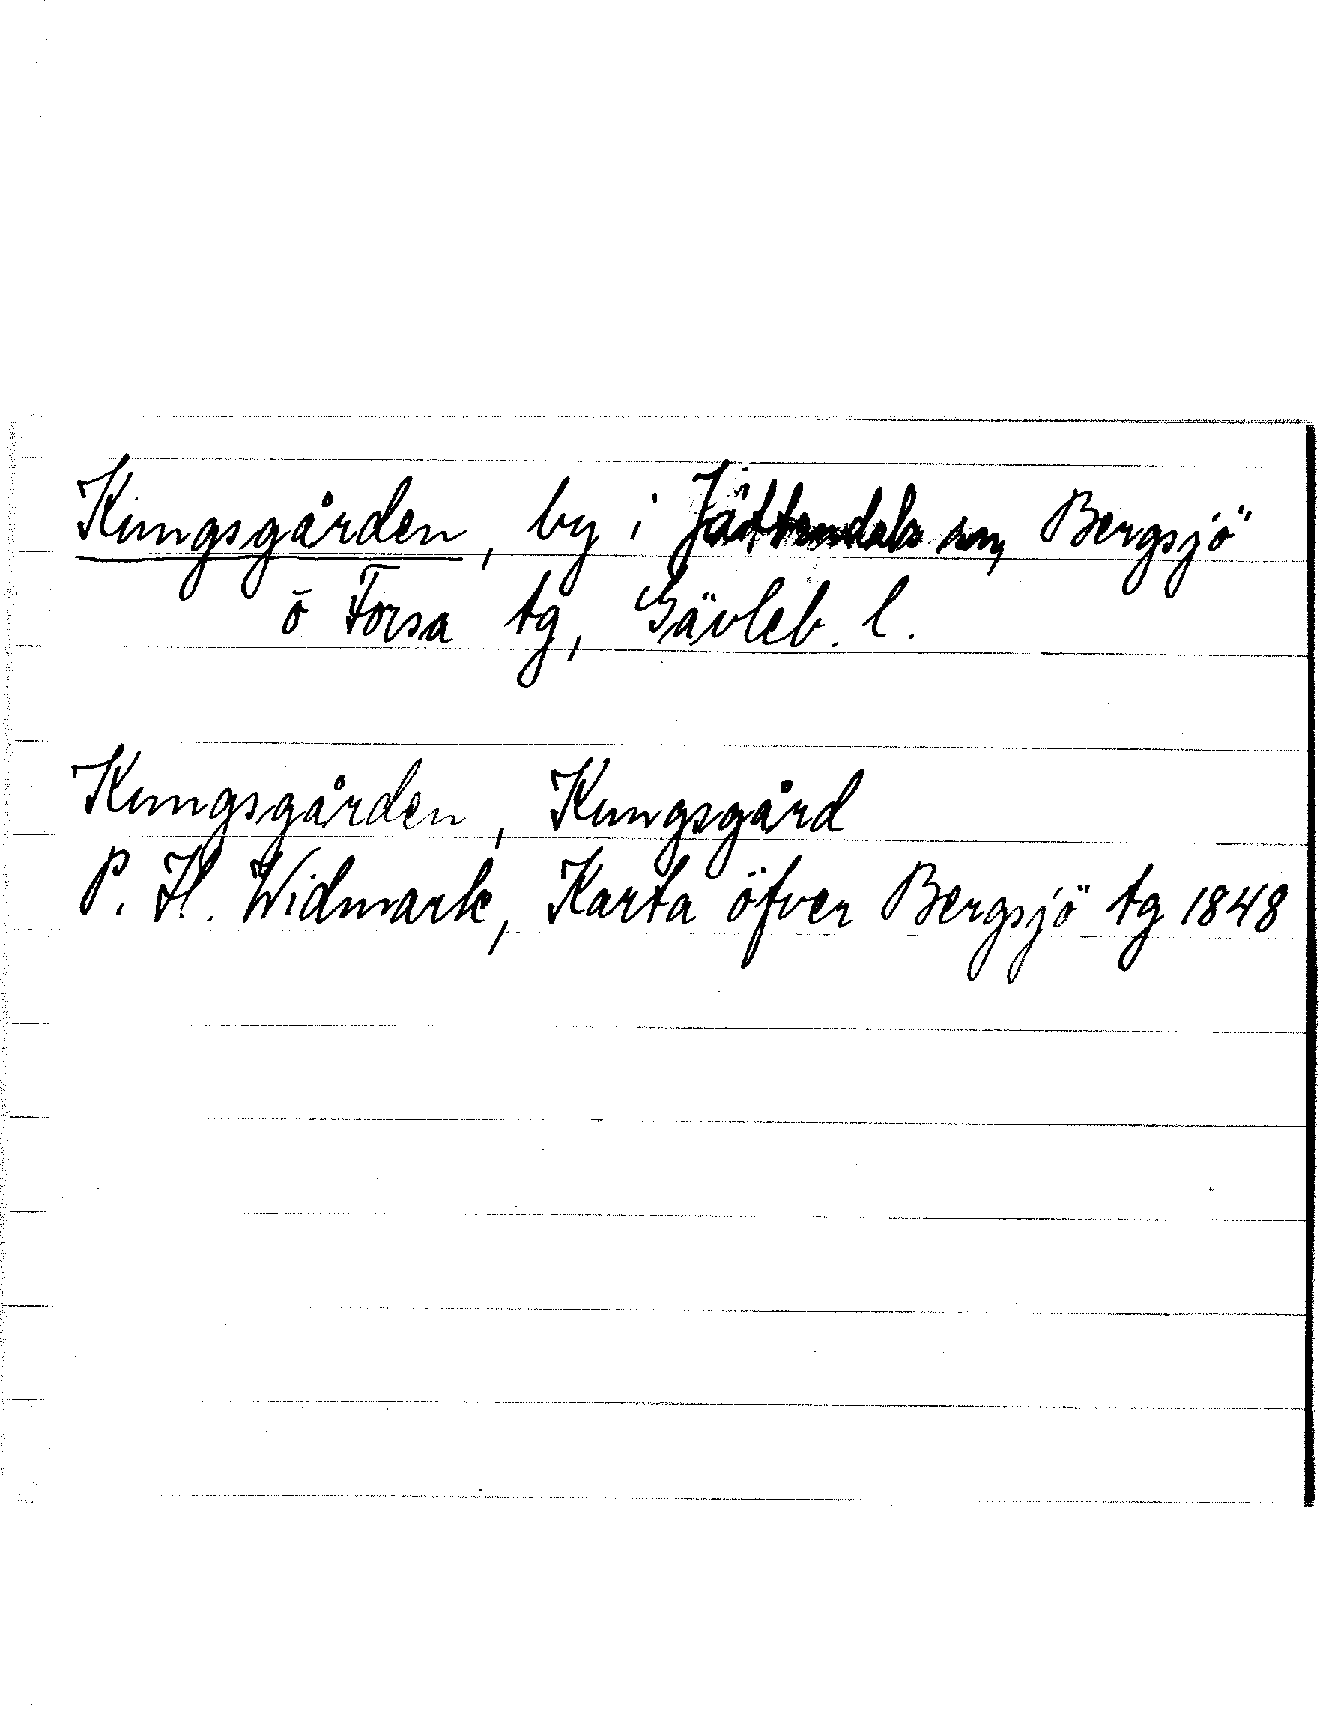 Kungsgården, by i Jättendals sn, Bergsjö
o Forsa tg, Gävleb. l.
Kungsgården, Kungsgård
P. H. Widmark, Karta öfver Bergsjö tg 1848